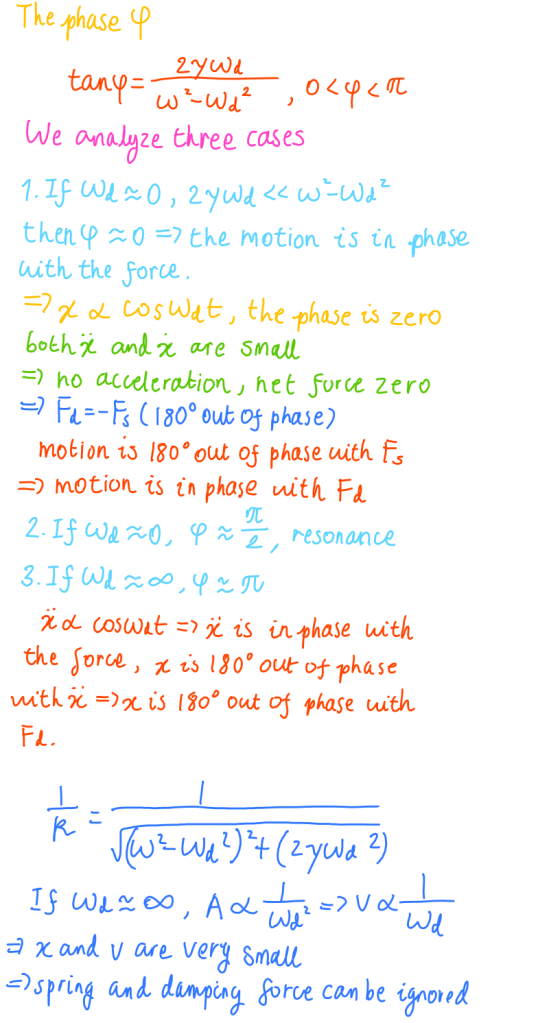 The phase φ
tanφ = 2γω_d / (ω² - ω_d²) , 0 < φ < π
We analyze three cases
1. If ω_d ≈ 0 , 2γω_d << ω² - ω_d²
then φ ≈ 0 => the motion is in phase
with the force.
=> x ∝ cosω_dt , the phase is zero
both ẍ and ẋ are small
=> no acceleration , net force zero
=> F_d = -F_s (180° out of phase)
motion is 180° out of phase with F_s
=> motion is in phase with F_d
2. If ω_d ≈ 0, φ ≈ π/2 , resonance
3. If ω_d ≈ ∞ , φ ≈ π
ẍ ∝ cosω_dt => ẍ is in phase with
the force , x is 180° out of phase
with ẍ => x is 180° out of phase with
F_d.
1/R = 1 / √((ω² - ω_d²)² + (2γω_d ²)
If ω_d ≈ ∞ , A ∝ 1/ω_d² => v ∝ 1/ω_d
=> x and v are very small
=> spring and damping force can be ignored